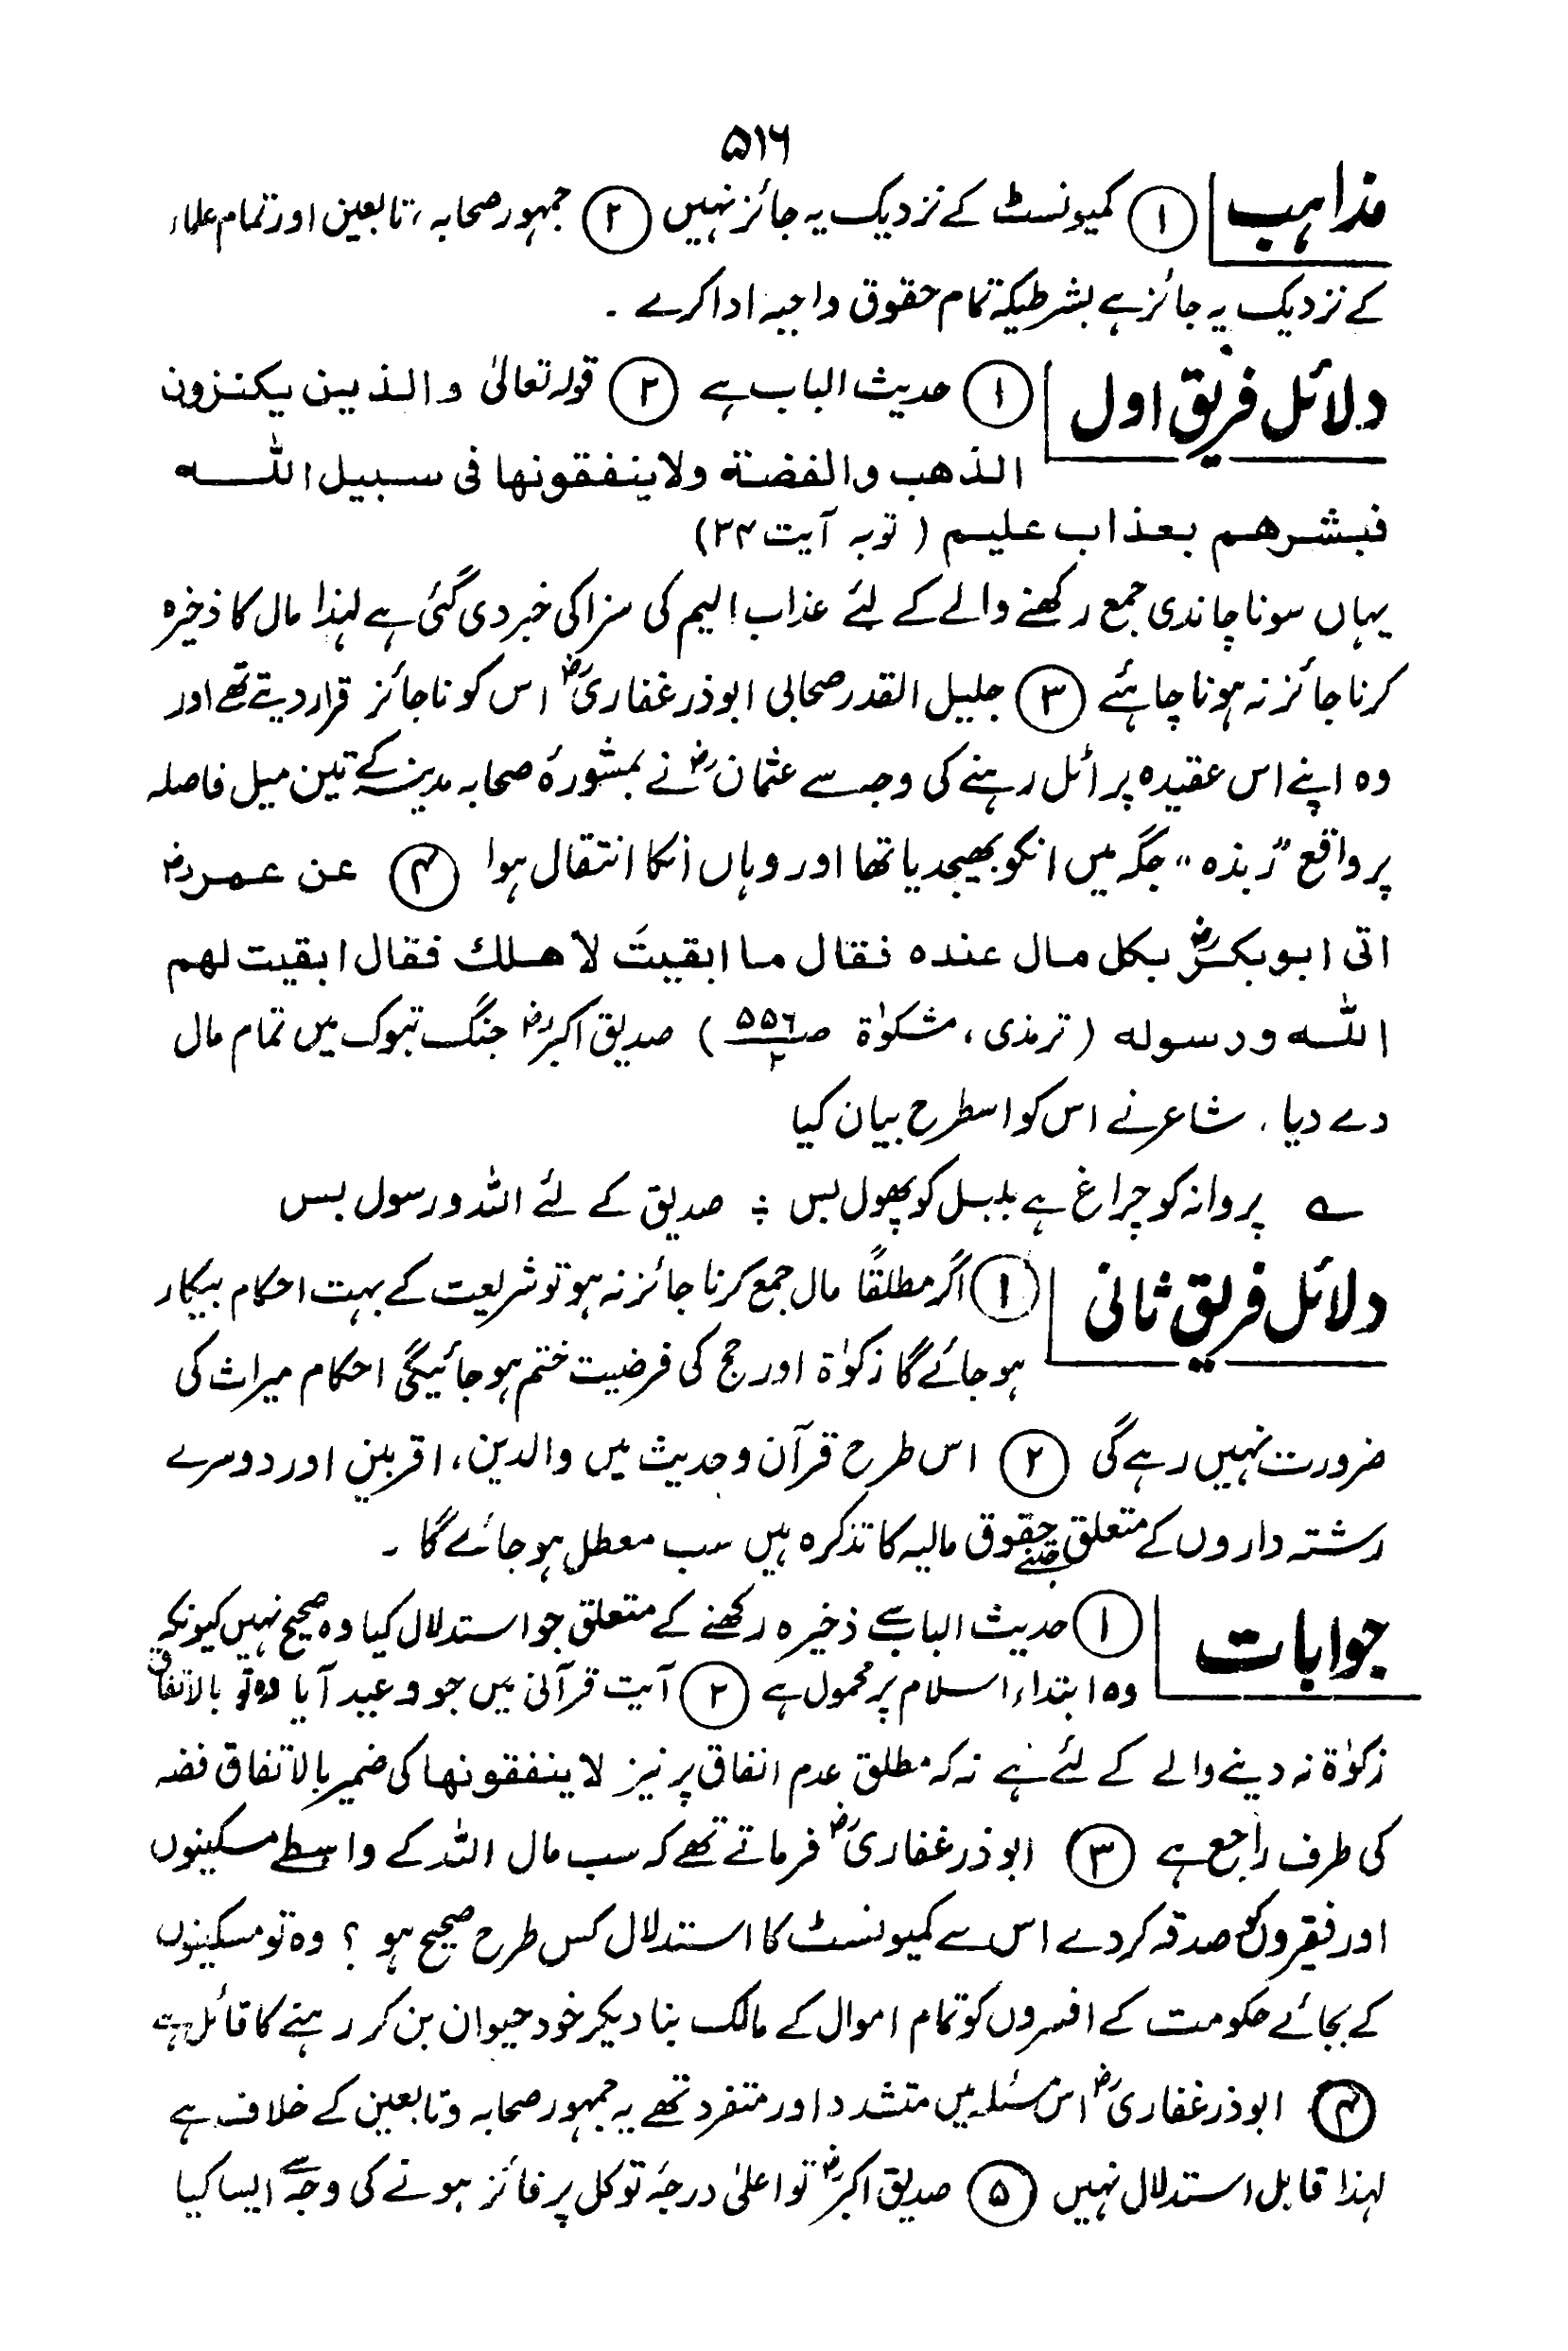 ۵۱۶
مذاہب ① کمیونسٹ کے نزدیک یہ جائز نہیں ② جمہور صحابہ، تابعین اور تمام علماء
کے نزدیک یہ جائز ہے بشرطیکہ تمام حقوق واجبہ ادا کرے ۔
دلائل فریق اول ① حدیث الباب ہے ② قولہ تعالیٰ والذین یکنزون
الذھب والفضة ولا ینفقونھا فی سبیل اللہ
فبشرھم بعذاب علیم ( توبہ آیت ۳۴)
یہاں سونا چاندی جمع رکھنے والے کے لئے عذاب الیم کی سزا کی خبر دی گئی ہے لہٰذا مال کا ذخیرہ
کرنا جائز نہ ہونا چاہئے ③ جلیل القدر صحابی ابوذر غفاریؓ اس کو ناجائز قرار دیتے تھے اور
وہ اپنے اس عقیدہ پر اٹل رہنے کی وجہ سے عثمانؓ نے بمشورۂ صحابہ مدینہ کے تین میل فاصلہ
پر واقع ”ربذہ“ جگہ میں انکو بھیجدیا تھا اور وہاں انکا انتقال ہوا ④ عن عمرؓ
اتی ابوبکرؓ بکل مال عندہ فقال ما ابقیتَ لاھلك فقال ابقیت لھم
اللہ ورسولہ ( ترمذی، مشکوٰۃ ص ۵۵۶/۲ ) صدیق اکبرؓ جنگ تبوک میں تمام مال
دے دیا ، شاعر نے اس کو اسطرح بیان کیا
؎ پروانہ کو چراغ ہے بلبل کو پھول بس ؛ صدیق کے لئے اللہ و رسول بس
دلائل فریق ثانی ① اگر مطلقًا مال جمع کرنا جائز نہ ہو تو شریعت کے بہت احکام بیکار
ہو جائے گا زکوٰۃ اور حج کی فرضیت ختم ہو جائیگی احکام میراث کی
ضرورت نہیں رہے گی ② اس طرح قرآن و حدیث میں والدین، اقربین اور دوسرے
رشتہ داروں کے متعلق جتنے حقوق مالیہ کا تذکرہ ہیں سب معطل ہو جائے گا ۔
جوابات ① حدیث الباب سے ذخیرہ رکھنے کے متعلق جو استدلال کیا وہ صحیح نہیں کیونکہ
وہ ابتداء اسلام پر محمول ہے ② آیت قرآنی میں جو وعید آیا وہ تو بالاتفاق
زکوٰۃ نہ دینے والے کے لئے ہے نہ کہ مطلق عدم انفاق پر نیز لا ینفقونھا کی ضمیر بالاتفاق فضہ
کی طرف راجع ہے ③ ابوذر غفاریؓ فرماتے تھے کہ سب مال اللہ کے واسطے مسکینوں
اور فقیروں کو صدقہ کردے اس سے کمیونسٹ کا استدلال کس طرح صحیح ہو ؟ وہ تو مسکینوں
کے بجائے حکومت کے افسروں کو تمام اموال کے مالک بنا دیکر خود حیوان بن کر رہنے کا قائل ہے
④ ابوذر غفاریؓ اس مسئلہ میں متشدد اور متفرد تھے یہ جمہور صحابہ و تابعین کے خلاف ہے
لہٰذا قابل استدلال نہیں ⑤ صدیق اکبرؓ تو اعلیٰ درجۂ توکل پر فائز ہونے کی وجہ سے ایسا کیا